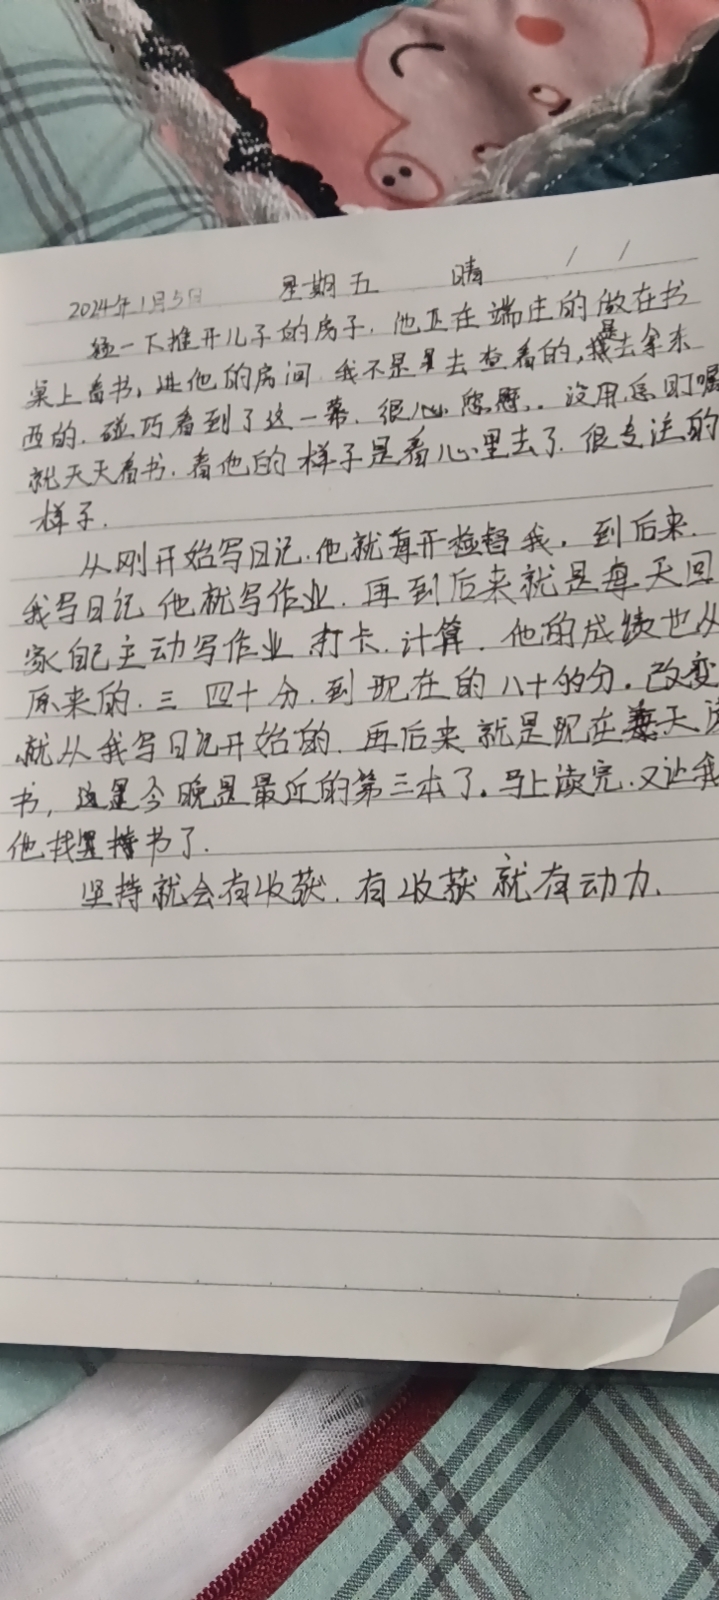 2024年1月5日 星期五 晴 / /
一下推开儿子的房子.他正在端庄的做在书
桌上看书,进他的房间.我不是去查看的,我是去拿东
西的.碰巧看到了这一幕.很心..没用叮嘱
就天天看书.看他的样子是看心里去了.很专注的
样子.
从刚开始写日记.他就每开督我.到后来.
我写日记他就写作业.再到后来就是每天回
家自己主动写作业打卡.计算.他的成绩也从
原来的.三四十分.到现在的八十的分.改变
就从我写日记开始的.再后来就是现在每天读
书,这是今晚是最近的第三本了.马上读完.又让我
他找书了.
坚持就会有收获.有收获就有动力.